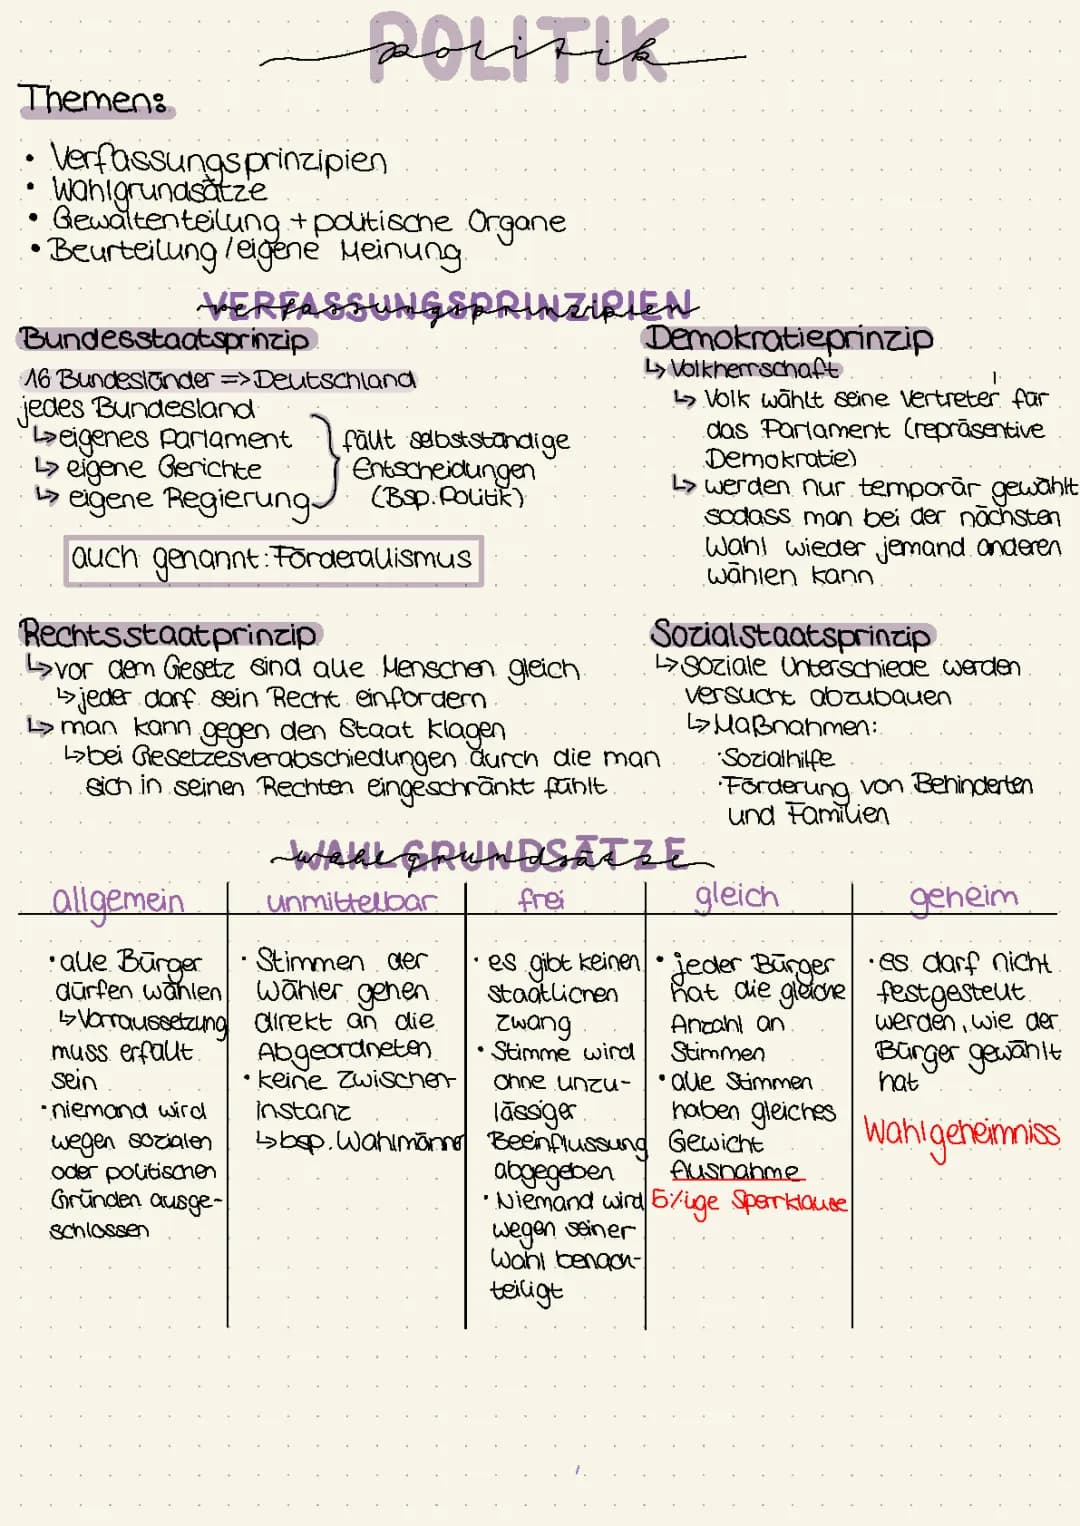 POLITIK
politik
Themen:
• Verfassungsprinzipien
• Wahlgrundsätze
• Gewaltenteilung + politische Organe
• Beurteilung / eigene Meinung
VERFASSUNGSPRINZIPIEN
verfassungsprinzipien
Bundesstaatsprinzip
16 Bundesländer => Deutschland
jedes Bundesland
↳ eigenes Parlament
↳ eigene Gerichte
↳ eigene Regierung
fällt selbstständige
Entscheidungen
(Bsp. Politik)
auch genannt: Förderallismus
Demokratieprinzip
↳ Volkherrschaft
↳ Volk wählt seine Vertreter für
das Parlament (repräsentive
Demokratie)
↳ werden nur temporär gewählt
sodass man bei der nächsten
Wahl wieder jemand anderen
wählen kann
Rechtsstaatprinzip
↳ vor dem Gesetz sind alle Menschen gleich
↳ jeder darf sein Recht einfordern
↳ man kann gegen den Staat klagen
↳ bei Gesetzesverabschiedungen durch die man
sich in seinen Rechten eingeschränkt fühlt
Sozialstaatsprinzip
↳ soziale Unterschiede werden
versucht abzubauen
↳ Maßnahmen:
· Sozialhilfe
· Förderung von Behinderten
und Familien
WAHLGRUNDSÄTZE
wahlgrundsätze
allgemein
• alle Bürger
dürfen wählen
↳ Vorraussetzung
muss erfüllt
sein
• niemand wird
wegen sozialen
oder politischen
Gründen ausge-
schlossen
unmittelbar
• Stimmen der
Wähler gehen
direkt an die
Abgeordneten
• keine Zwischen-
instanz
↳ bsp. Wahlmänner
frei
• es gibt keinen
staatlichen
Zwang
• Stimme wird
ohne unzu-
lässiger
Beeinflussung
abgegeben
• Niemand wird
wegen seiner
Wahl benach-
teiligt
gleich
• jeder Bürger
hat die gleiche
Anzahl an
Stimmen
• alle Stimmen
haben gleiches
Gewicht
Ausnahme
5%ige Sperrklause
geheim
• es darf nicht
festgestellt
werden, wie der
Bürger gewählt
hat
Wahlgeheimniss